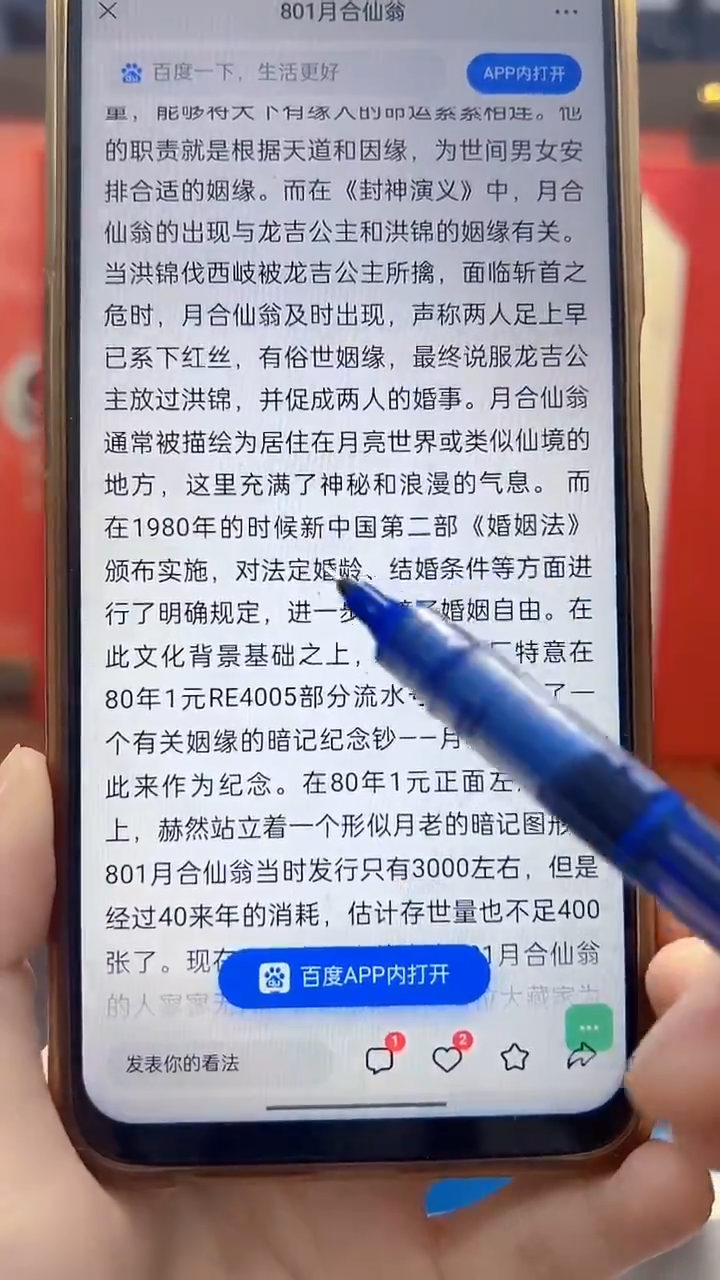 801月合仙翁
百度一下，生活更好
APP内打开
量，能够将天下有缘人的命运紧紧相连。他
的职责就是根据天道和因缘，为世间男女安
排合适的姻缘。而在《封神演义》中，月合
仙翁的出现与龙吉公主和洪锦的姻缘有关。
当洪锦伐西岐被龙吉公主所擒，面临斩首之
危时，月合仙翁及时出现，声称两人足上早
已系下红丝，有俗世姻缘，最终说服龙吉公
主放过洪锦，并促成两人的婚事。月合仙翁
通常被描绘为居住在月亮世界或类似仙境的
地方，这里充满了神秘和浪漫的气息。 而
在1980年的时候新中国第二部《婚姻法》
颁布实施，对法定婚龄、结婚条件等方面进
行了明确规定，进一步 了婚姻自由。在
此文化背景基础之上， 特意在
80年1元RE4005部分流水号 了一
个有关姻缘的暗记纪念钞——月
此来作为纪念。在80年1元正面左
上，赫然站立着一个形似月老的暗记图形
801月合仙翁当时发行只有3000左右，但是
经过40来年的消耗，估计存世量也不足400
张了。现在 1月合仙翁
的人寥寥无 大藏家为
百度APP内打开
发表你的看法
1
2